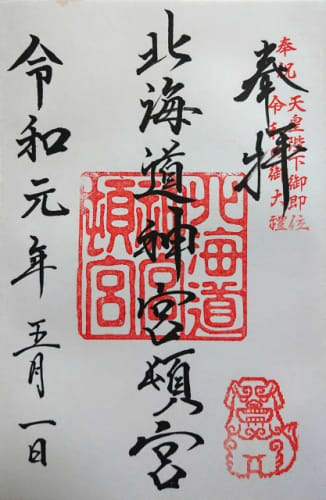 奉拝
奉祝 天皇陛下御即位
令和御大禮
北海道神宮頓宮
北海道
神宮
頓宮
令和元年五月一日